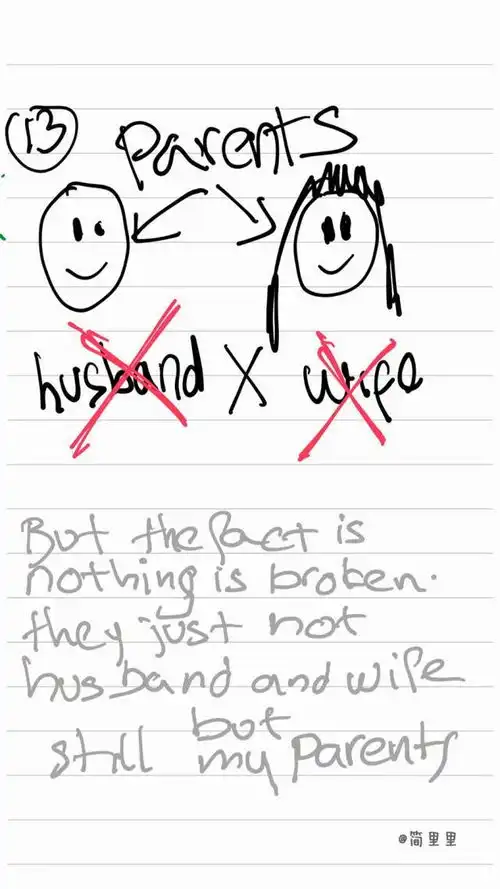 13 parents
husband X wife
But the fact is
nothing is broken.
they just not
husband and wife
but
still my parents
@简里里